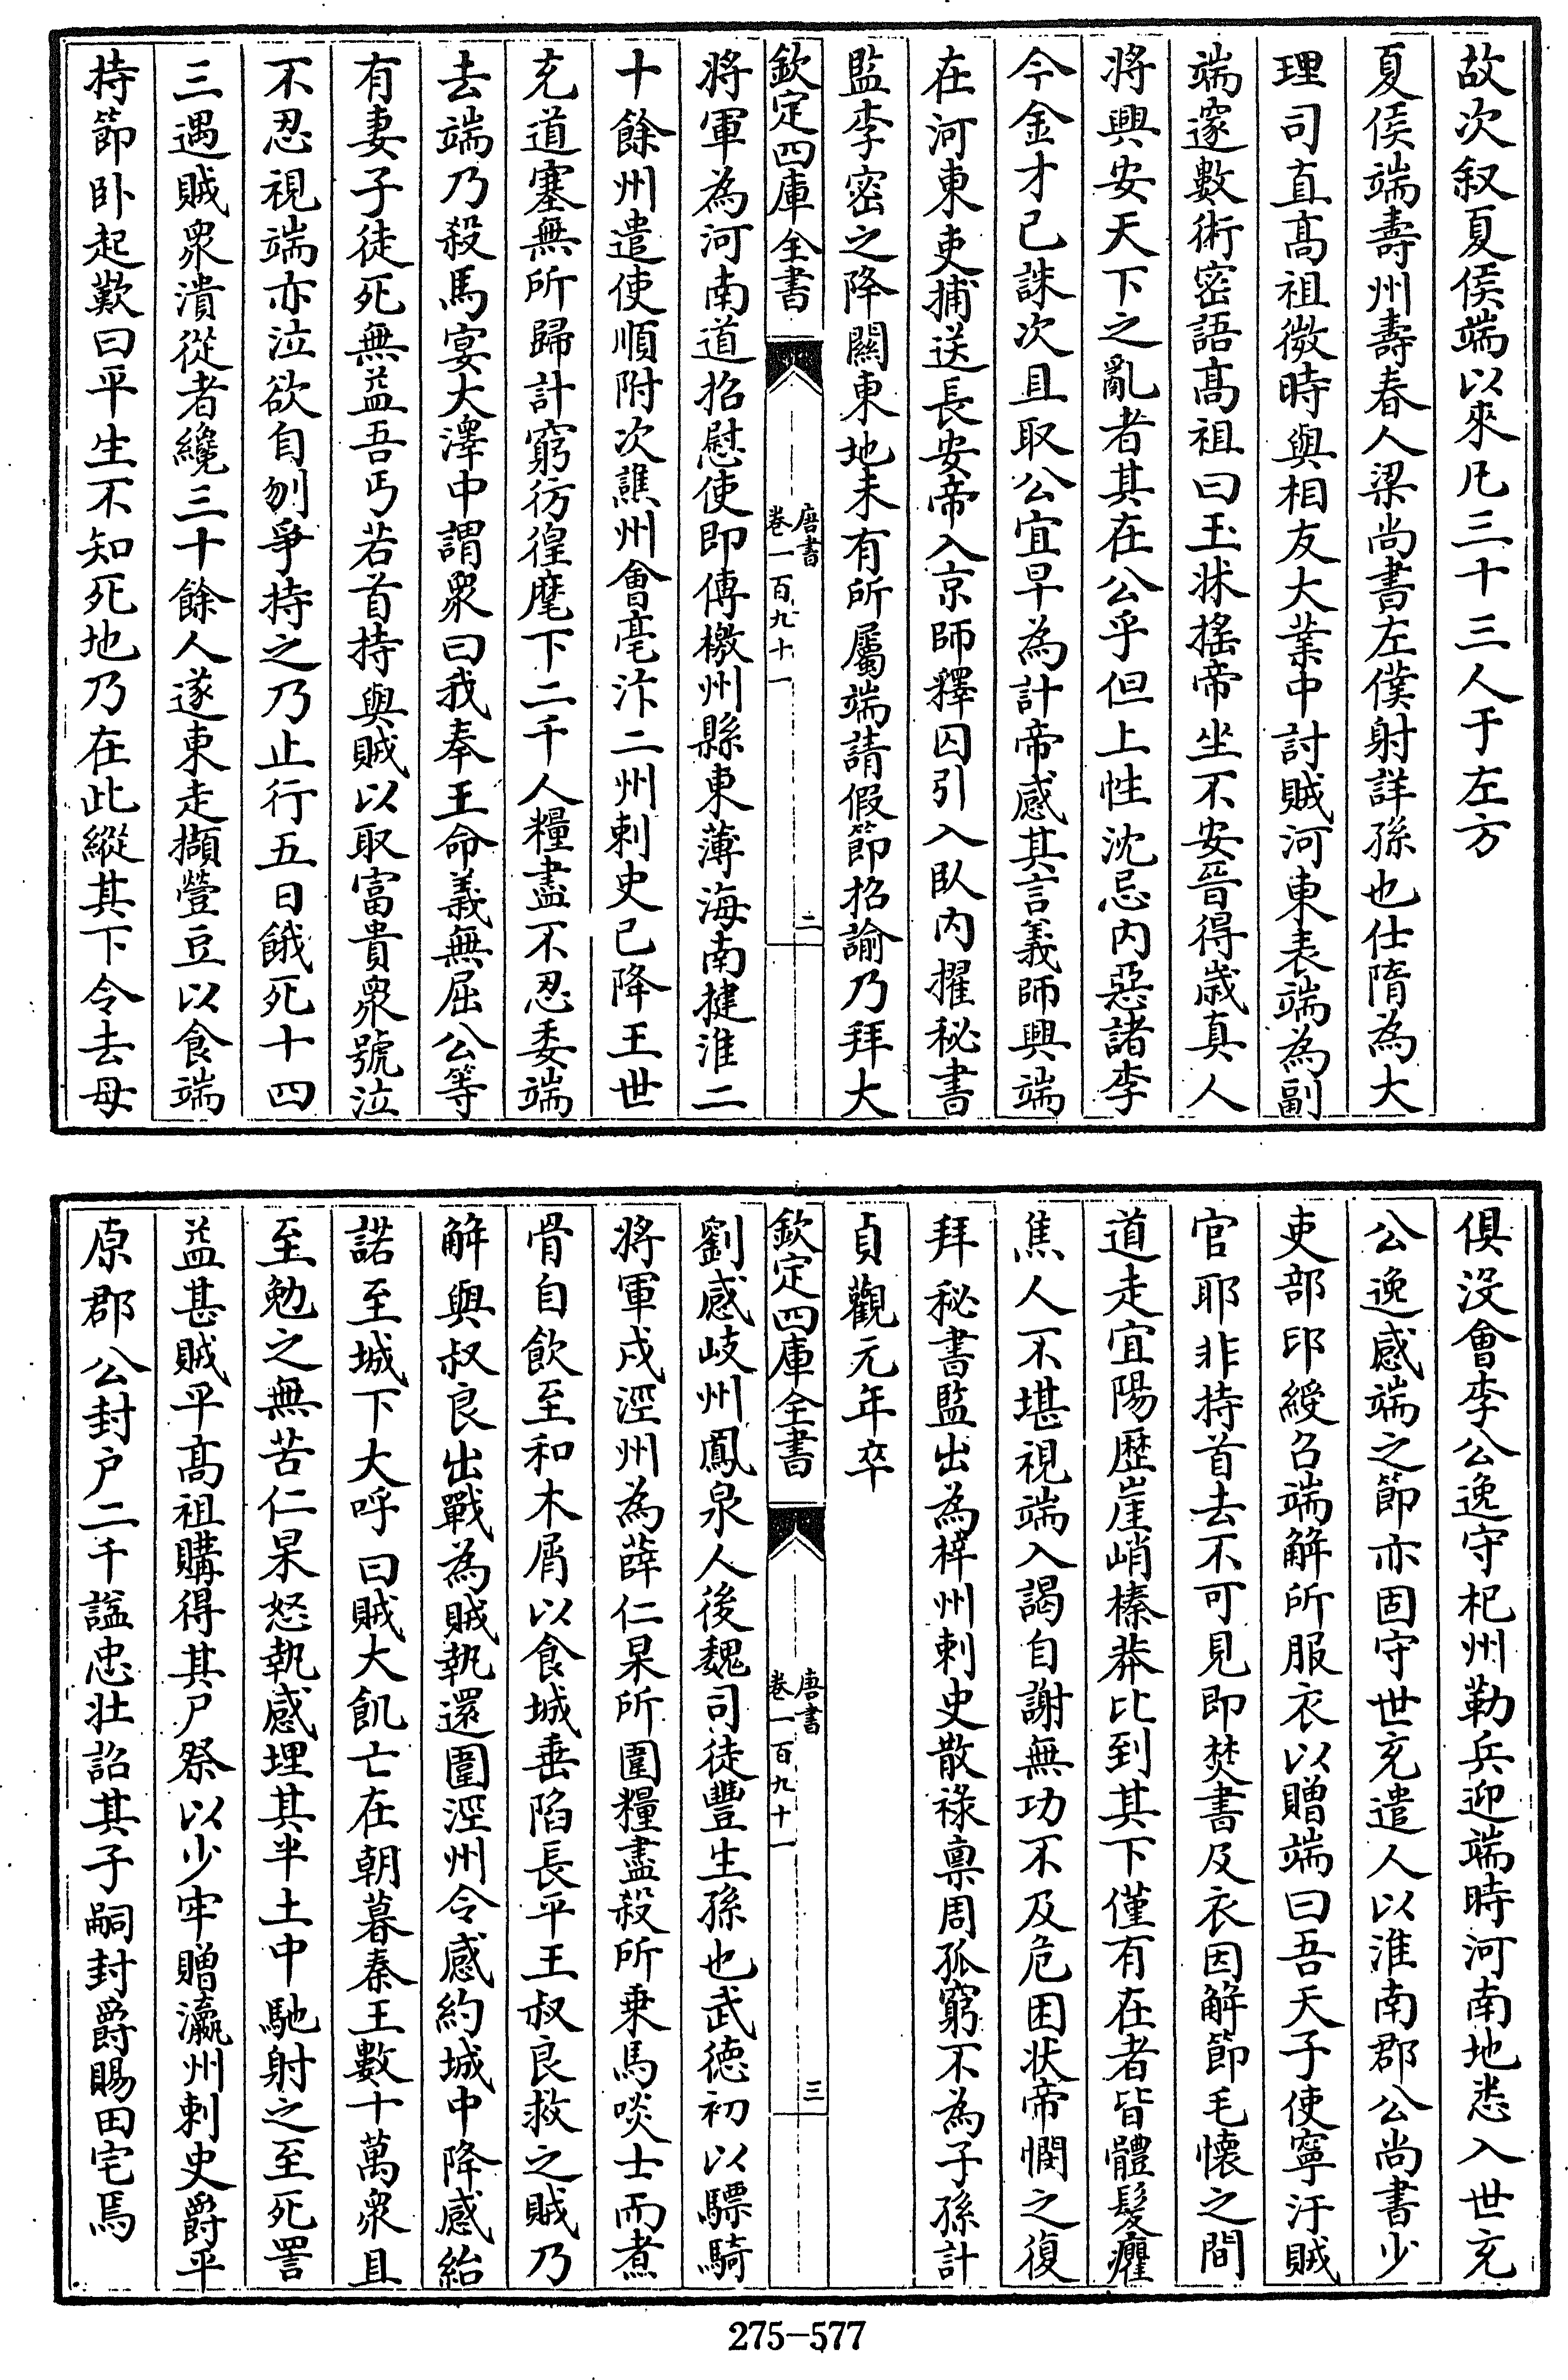 故次叙夏侯端以來凡三十三人于左方
夏侯端壽州壽春人梁尚書左僕射詳孫也仕隋為大
理司直髙祖微時與相友大業中討賊河東表端為副
端邃數術密語髙祖曰玉牀搖帝坐不安晉得歲真人
將興安天下之亂者其在公乎但上性沈忌内惡諸李
今金才已誅次且取公宜早為計帝感其言義師興端
在河東吏捕送長安帝入京師釋囚引入臥内擢秘書
監李密之降關東地未有所屬端請假節招諭乃拜大
欽定四庫全書
唐書
卷一百九十一
二
將軍為河南道招慰使即傳檄州縣東薄海南揵淮二
十餘州遣使順附次譙州會亳汴二州刺史已降王世
充道塞無所歸計窮彷徨麾下二千人糧盡不忍委端
去端乃殺馬宴大澤中謂衆曰我奉王命義無屈公等
有妻子徒死無益吾丐若首持與賊以取富貴衆號泣
不忍視端亦泣欲自刎爭持之乃止行五日餓死十四
三遇賊衆潰從者纔三十餘人遂東走擷䝁豆以食端
持節卧起歎曰平生不知死地乃在此縱其下令去毋
俱沒會李公逸守杞州勒兵迎端時河南地悉入世充
公逸感端之節亦固守世充遣人以淮南郡公尚書少
吏部印綬召端解所服衣以贈端曰吾天子使寧汙賊
官耶非持首去不可見即焚書及衣因解節毛懷之間
道走宜陽歷崖峭榛莽比到其下僅有在者皆體髮癯
焦人不堪視端入謁自謝無功不及危困状帝憫之復
拜秘書監出為梓州刺史散祿禀周孤窮不為子孫計
貞觀元年卒
欽定四庫全書
唐書
卷一百九十一
三
劉感岐州鳳泉人後魏司徒豐生孫也武德初以驃騎
將軍戍涇州為薛仁杲所圍糧盡殺所乗馬啖士而煮
骨自飲至和木屑以食城垂陷長平王叔良救之賊乃
解與叔良出戰為賊執還圍涇州令感約城中降感紿
諾至城下大呼曰賊大飢亡在朝暮秦王數十萬衆且
至勉之無苦仁杲怒執感埋其半土中馳射之至死詈
益甚賊平髙祖購得其尸祭以少牢贈瀛州刺史爵平
原郡公封户二千諡忠壯詔其子嗣封爵賜田宅焉
275-577